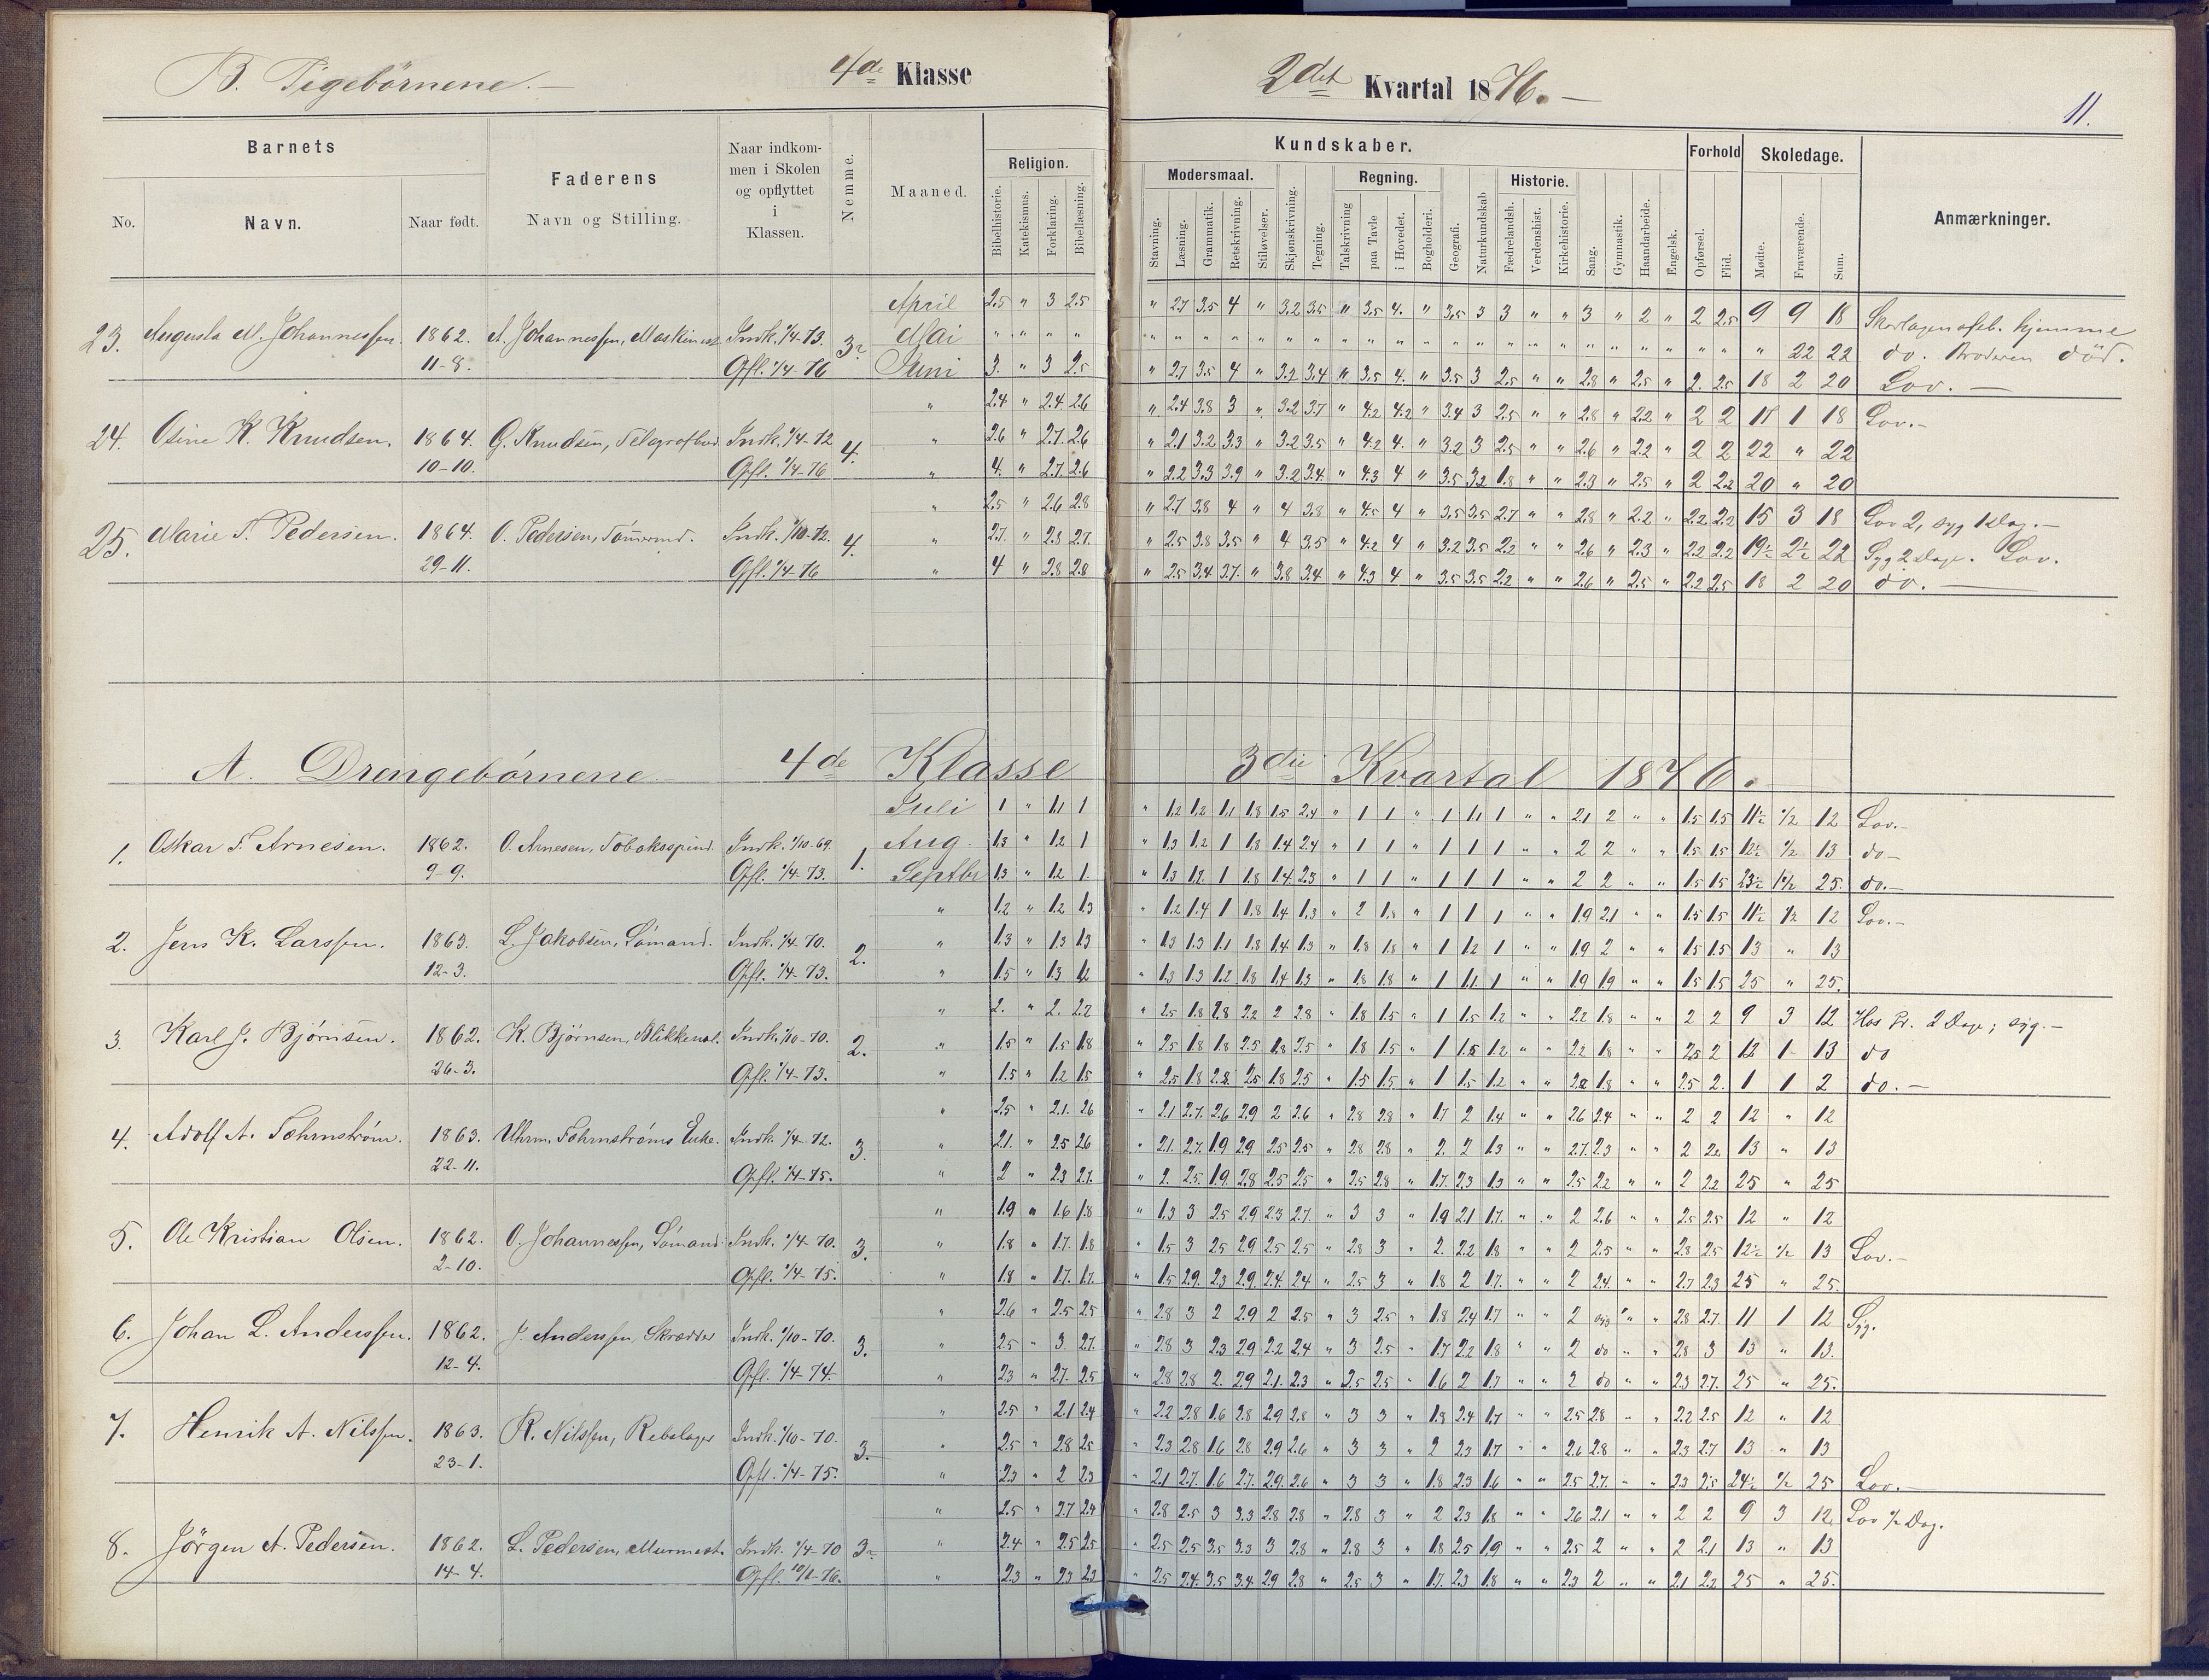 B. Pigebörnene.
4de Klasse
2det Kvartal 1876.
11.
Barnets
Faderens
Naar indkommen i Skolen og opflyttet i Klassen.
Nemme.
Maaned.
Religion.
Kundskaber.
Forhold
Skoledage.
Anmærkninger.
No.
Navn.
Naar født.
Navn og Stilling.
Bibelhistorie.
Katekismus.
Forklaring.
Bibellæsning.
Modersmaal.
Regning.
Historie.
Stavning.
Læsning.
Grammatik.
Retskrivning.
Stiløvelser.
Skjønskrivning.
Tegning.
Talskrivning
paa Tavle
i Hovedet.
Bogholderi.
Geografi.
Naturkundskab
Fædrelandsh.
Verdenshist.
Kirkehistorie.
Sang.
Gymnastik.
Haandarbeide.
Engelsk.
Opførsel.
Flid.
Mødte.
Fraværende.
Sum.
April 2.5 " 3 2.5 " 2.7 3.5 4 " 3.2 3.5 " 3.5 4. " 3.5 3 3 " " 3 " 2 " 2 2.5 9 9 18
23. Augusta M. Johannessen. 1862. A. Johannessen, Maskinist Indk. 1/4-73. 3 Mai " 22 22 do. Broderen död.
11-8. Opfl. 1/4-76 Juni 3. " 3 2.5 " 2.7 3.5 4 " 3.2 3.4 " 3.5 4. " 3.5 3 2.5 " " 2.8 " 2.5 " 2. 2.5 18 2 20 Lov.
" 2.4 " 2.4 2.6 " 2.4 3.8 3 " 3.2 3.7 " 4.2 4.2 " 3.4 3 2.5 " " 2.8 " 2.2 " 2 2 17 1 18 Lov.
24. Osine K. Knudsen. 1864. G. Knudsen, Telegrafbud. Indk. 1/4-72 4. " 2.6 " 2.7 2.6 " 2.1 3.2 3.3 " 3.2 3.5 " 4.2 4. " 3.2 3 2.5 " " 2.6 " 2.2 " 2 2 22 " 22
10-10. Opfl. 1/4-76 " 4. " 2.7 2.6 " 2.2 3.3 3.9 " 3.2 3.4 " 4.3 4 " 3.5 3.2 1.8 " " 2.3 " 2.5 " 2 2.2 20 " 20
" 2.5 " 2.6 2.8 " 2.7 3.8 4 " 4 3.8 " 4.5 4 " 3.5 3.5 2.7 " " 2.8 " 2.2 " 2.2 2.2 15 3 18 Lov 2, syg 1 Dag.
25. Marie T. Pedersen. 1864. O. Pedersen, Tömmermd. Indk. 1/10-72. 4. " 2.7. " 2.3 2.7. " 2.5 3.8 3.5 " 4 3.5 " 4.2 4 " 3.2 3.5 2.2 " " 2.6 " 2.3 " 2.2 2.2 19½ 2½ 22 Syg 2 Dage. Lov.
29-11. Opfl. 1/4-76 " 4 " 2.8 2.8 " 2.5 3.4 3.7. " 3.8 3.4 " 4.3 4 " 3.5 3.5 2.2 " " 2.6 " 2.5 " 2.2 2.5 18 2 20 do.
A. Drengebörnene 4de Klasse 3die Kvartal 1876.
Juli 1 " 1.1 1 " 1.2 1.2 1.1 1.8 1.5 2.4 " 1 1 " 1 1.1 1 " " 2.1 2 " " 1.5 1.5 11½ ½ 12 Lov.
1. Oskar F. Arnesen. 1862. O. Arnesen, Tobaksspind. Indk. 1/10-69. 1. Aug. 1.3 " 1.2 1 " 1.3 1.2 1 1.8 1.4 2.4 " 1 1 " 1 1 1 " " 2 2 " " 1.5 1.5 12½ ½ 13 do
9-9. Opfl. 1/4-73. Septbr 1.3 " 1.2 1. " 1.3 1.2. 1 1.8 1.4 2.3 " 1 1 " 1 1 1 " " 2 2 " " 1.5 1.5 23½ 1½ 25 do.
" 1.2 " 1.2 1.3 " 1.2 1.4 1 1.8 1.4 1.3 " 2 1.8 " 1 1 1 " " 1.9 2.1 " " 1.5 1.5 11½ ½ 12 Lov.
2. Jens K. Larssen. 1863. L. Jakobsen, Sömand. Indk. 1/4-70. 2. " 1.3 " 1.3 1.3 " 1.3 1.3 1.1 1.8 1.4 1.3 " 1.8 1.8 " 1 1.2 1 " " 1.9 2 " " 1.5 1.5 13 " 13
12-3. Opfl. 1/4-73. " 1.5 " 1.3 1.2 " 1.3 1.3 1.2 1.8 1.4 1.3 " 1.8 1.8 " 1 1.1 1 " " 1.9 1.9 " " 1.5 1.5 25 " 25.
" 2. " 2. 2.2 " 2.5 1.8 1.8 2.2 2 2.8 " 1.8 1.5 " 1 1.5 1.2 " " 2.2 1.8 " " 2 2 9 3 12 Hos Pr. 2 Dage; syg.
3. Karl J. Bjørnsen. 1862. K. Bjørnsen, Blikkensl. Indk. 1/10-70. 2. " 1.5 " 1.5 1.8 " 2.5 1.8 1.8 2.5 1.8 2.5 " 1.8 1.5 " 1 1.5 1.2 " " 2.2 1.8 " " 2.5 2 12 1 13 do
26-3. Opfl. 1/4-73. " 1.5 " 1.2 1.5 " 2.5 1.8 2.8 2.5 1.8 2.5 " 1.5 1.5 " 1 1.5 1.2 " " 2.2 1.8 " " 2.5 2. 1 1 2 do.
" 2.5 " 2.1. 2.6 " 2.1 2.7. 2.6 2.9 2 2.6 " 2.8 2.8 " 1.7 2 1.4 " " 2.6 2.4 " " 2 2 12 " 12
4. Adolf A. Fohrnström. 1863. Uhrm. Fohrnströms Enke. Indk. 1/4-72. 3. " 2.1. " 2.5 2.6 " 2.1. 2.7. 1.9 2.9 2.5 2.5 " 2.8 2.8 " 2. 2 1.3 " " 2.7. 2.3 " " 2 2.2 13 " 13
22-11. Opfl. 1/4-75. " 2 " 2.3 2.7. " 2. 2.5. 1.9. 2.8 2.5 2.5 " 2.5 2.8 " 1.7. 2.3 1.3 " " 2.5 2.2 " " 2 2.2 25 " 25
" 1.9 " 1.6 1.8 " 1.3 3 2.5 2.9 2.3 2.7. " 3 3 " 1.9 2.1 1.7. " " 2 2.6 " " 2.5 2.5 12 " 12
5. Ole Kristian Olsen. 1862. O. Johannessen, Sömand. Indk. 1/4-70. 3. " 1.8 " 1.7. 1.8 " 1.5 3 2.5 2.9 2.5 2.5 " 2.8 3 " 2. 2.2 1.8 " " 2 2.5 " " 2.8 2.5 12½ ½ 13 Lov.
2-10. Opfl. 1/4-75. " 1.8 " 1.7. 1.7. " 1.5 2.9. 2.3 2.9. 2.4. 2.4 " 2.5 3 " 1.8 2 1.7. " " 2 2.4. " " 2.7 2.3 25 " 25.
" 2.6 " 2.5 2.5 " 2.8 3 2 2.9 2 2.5 " 3 2.5 " 1.8 2.4 1.7 " " 2 syg " " 2.8 2.7. 11 1 12 Syg.
6. Johan L. Anderssen. 1862. J. Anderssen, Skrædder Indk. 1/10-70. 3. " 2.5 " 3. 2.7. " 2.8 3 2.3 2.9 2.2 2.4 " 3 2.5 " 1.7 2.2 1.8 " " 2 do " " 2.8 3 13 " 13.
12-4. Opfl. 1/4-74. " 2.3 " 2.7. 2.5 " 2.8 2.8 2. 2.9 2.1. 2.3 " 2.5 2.5 " 1.6 2 1.7 " " 2 do " " 2.3 2.7. 25 " 25.
" 2.5 " 2.1 2.4 " 2.2 2.8 1.6 2.8 2.9 2.8 " 3 3 " 1.9 2.4 1.7 " " 2.5 2.8 " " 2.2 2.5 12 " 12
7. Henrik A. Nilssen. 1863. R. Nilssen, Rebslager Indk. 1/10-70. 3. " 2.5 " 2.8 2.5 " 2.3 2.8 1.6 2.8 2.9 2.6 " 3 3 " 2 2.3 1.7 " " 2.6 2.8 " " 2.3 2.7 13 " 13
23-1. Opfl. 1/4-75. " 2.3 " 2 2.3 " 2.1 2.7. 1.6 2.7. 2.9. 2.6 " 3 3 " 1.8 2.3 1.6 " " 2.5 2.7. " " 2.3 2.5 24½ ½ 25 Lov.
" 2.5 " 2.7 2.4 " 2.8 2.5 3 3.3 2.8 2.8 " 2.8 3 " 2 2.3 1.8 " " 2.6 2.1 " " 2 2 9 3 12 Lov ½ Dag.
8. Jörgen A. Pedersen. 1862. L. Pedersen, Murmest. Indk. 1/4-70 3 " 2.4 " 2.5 2.5 " 2.5 2.5 3.5 3.3 3 2.8 " 2.8 3 " 1.8 2.5 1.9 " " 2.5 2 " " 2 2.1 13 " 13
14-4. Opfl. 10/1-76. " 2.3 " 2.3 2.3 " 2.5 2.4. 3.5 3.4 2.9 2.8 " 2.5 3 " 1.7. 2.3 1.8 " " 2.3 2 " " 2.1 2.2 25 " 25.